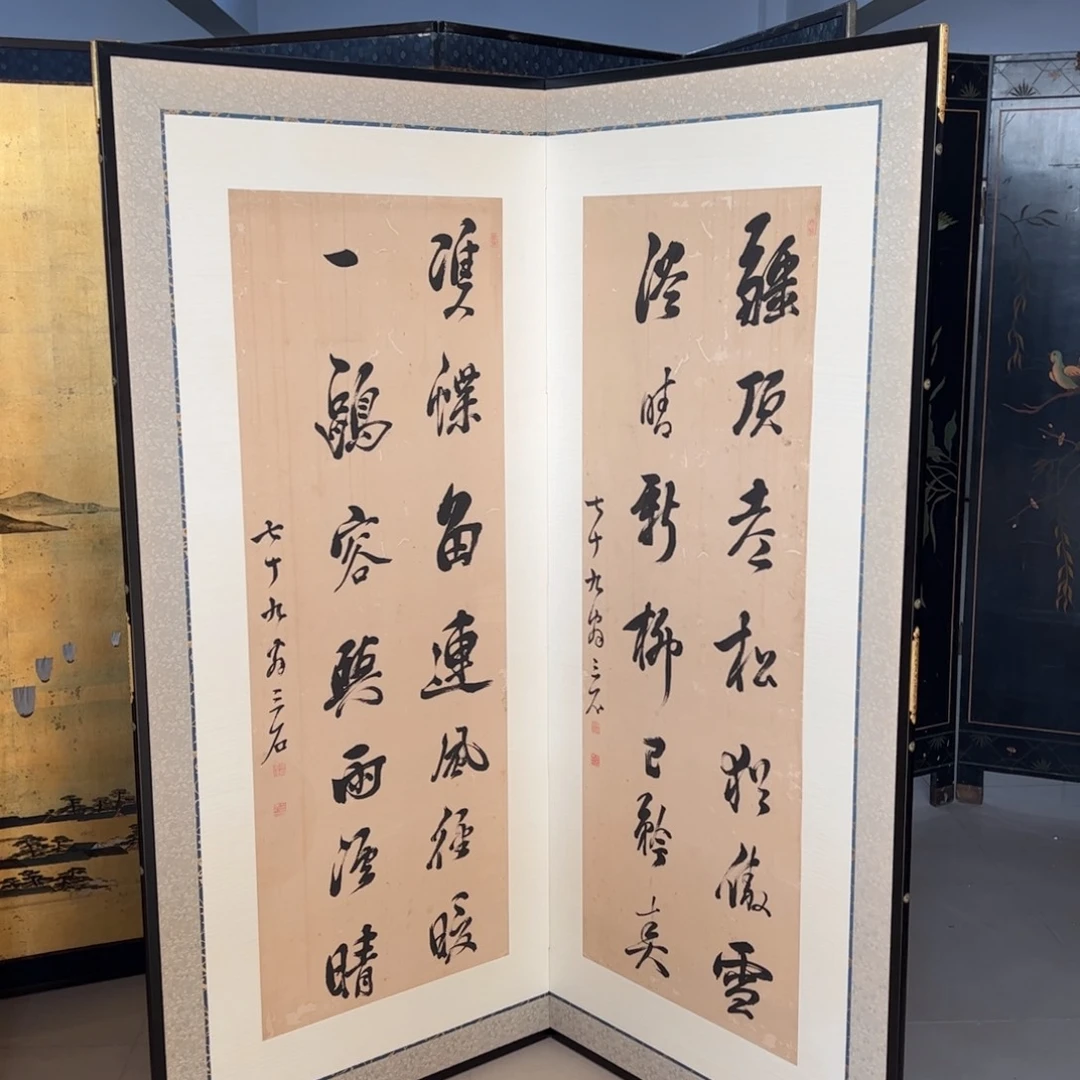 頂老松猶傲雪
晴新柳已矜
七十九翁三石
蝶留連風徑暖
一鷗容與雨晴
七十九翁三石